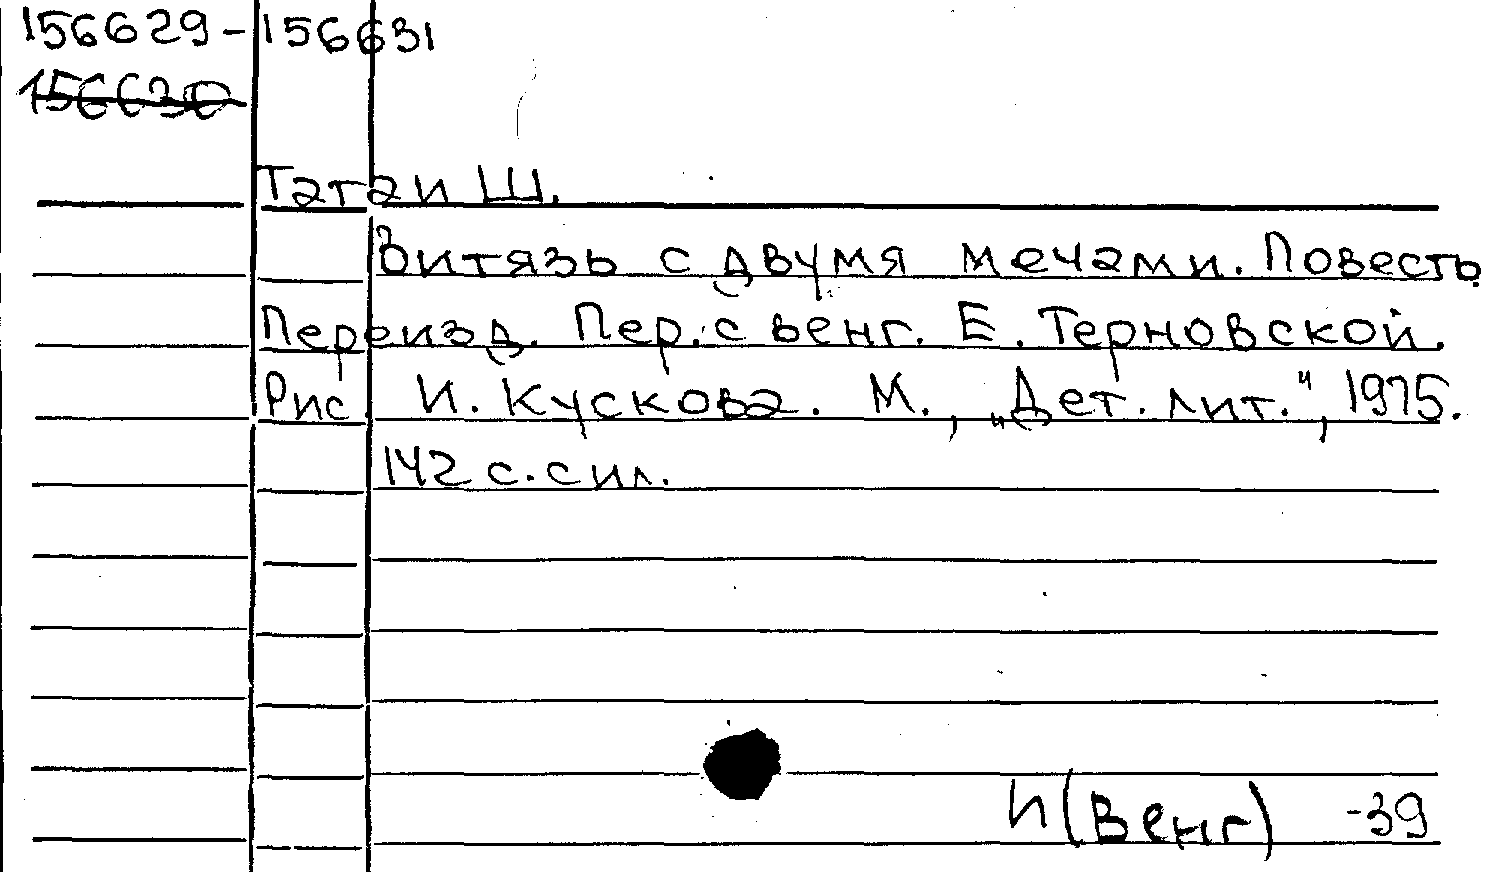 156629-156631
156630
Татаи Ш.
Витязь с двумя мечами. Повесть.
Переизд. Пер. с венг. Е. Терновской.
Рис И. Кускова. М., „Дет. лит.", 1975.
142 с. с ил.
И(Венг) -39